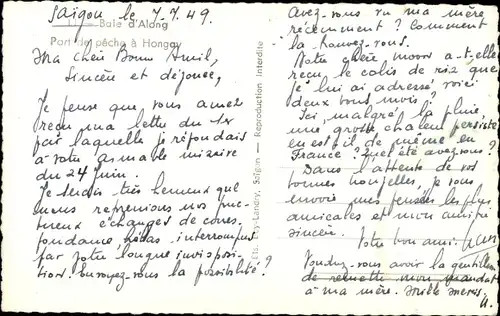 Saïgon le 7.7.49.
Baie d'Along
Port de pêche à Hongay
Ma chère Bonne Amie,
Sincère et dévouée,
Je pense que vous avez
reçu ma lettre du 1er
par laquelle je répondais
à votre aimable missive
du 24 Juin.
Je serais très heureux que
nous reprenions nos fruc-
tueux échanges de corres-
pondance, hélas interrompus
par votre longue indisposi-
tion. En voyez-vous la possibilité ?
Ets. Landry, Saïgon — Reproduction Interdite
Avez-vous vu ma mère
récemment ? Comment
la trouvez-vous.
Notre chère a-t-elle
reçu le colis de riz que
je lui ai adressé, voici
deux bons mois ?
Ici, malgré la pluie,
une grosse chaleur persiste
en est-il de même en
France ? Quel été avez-vous ?
Dans l'attente de vos
bonnes nouvelles, je vous
envoie mes pensées les plus
amicales et mon amitié
sincère.
Votre bon ami.
Voudrez-vous avoir la gentillesse
de remettre mon mandat
à ma mère. Mille mercis,